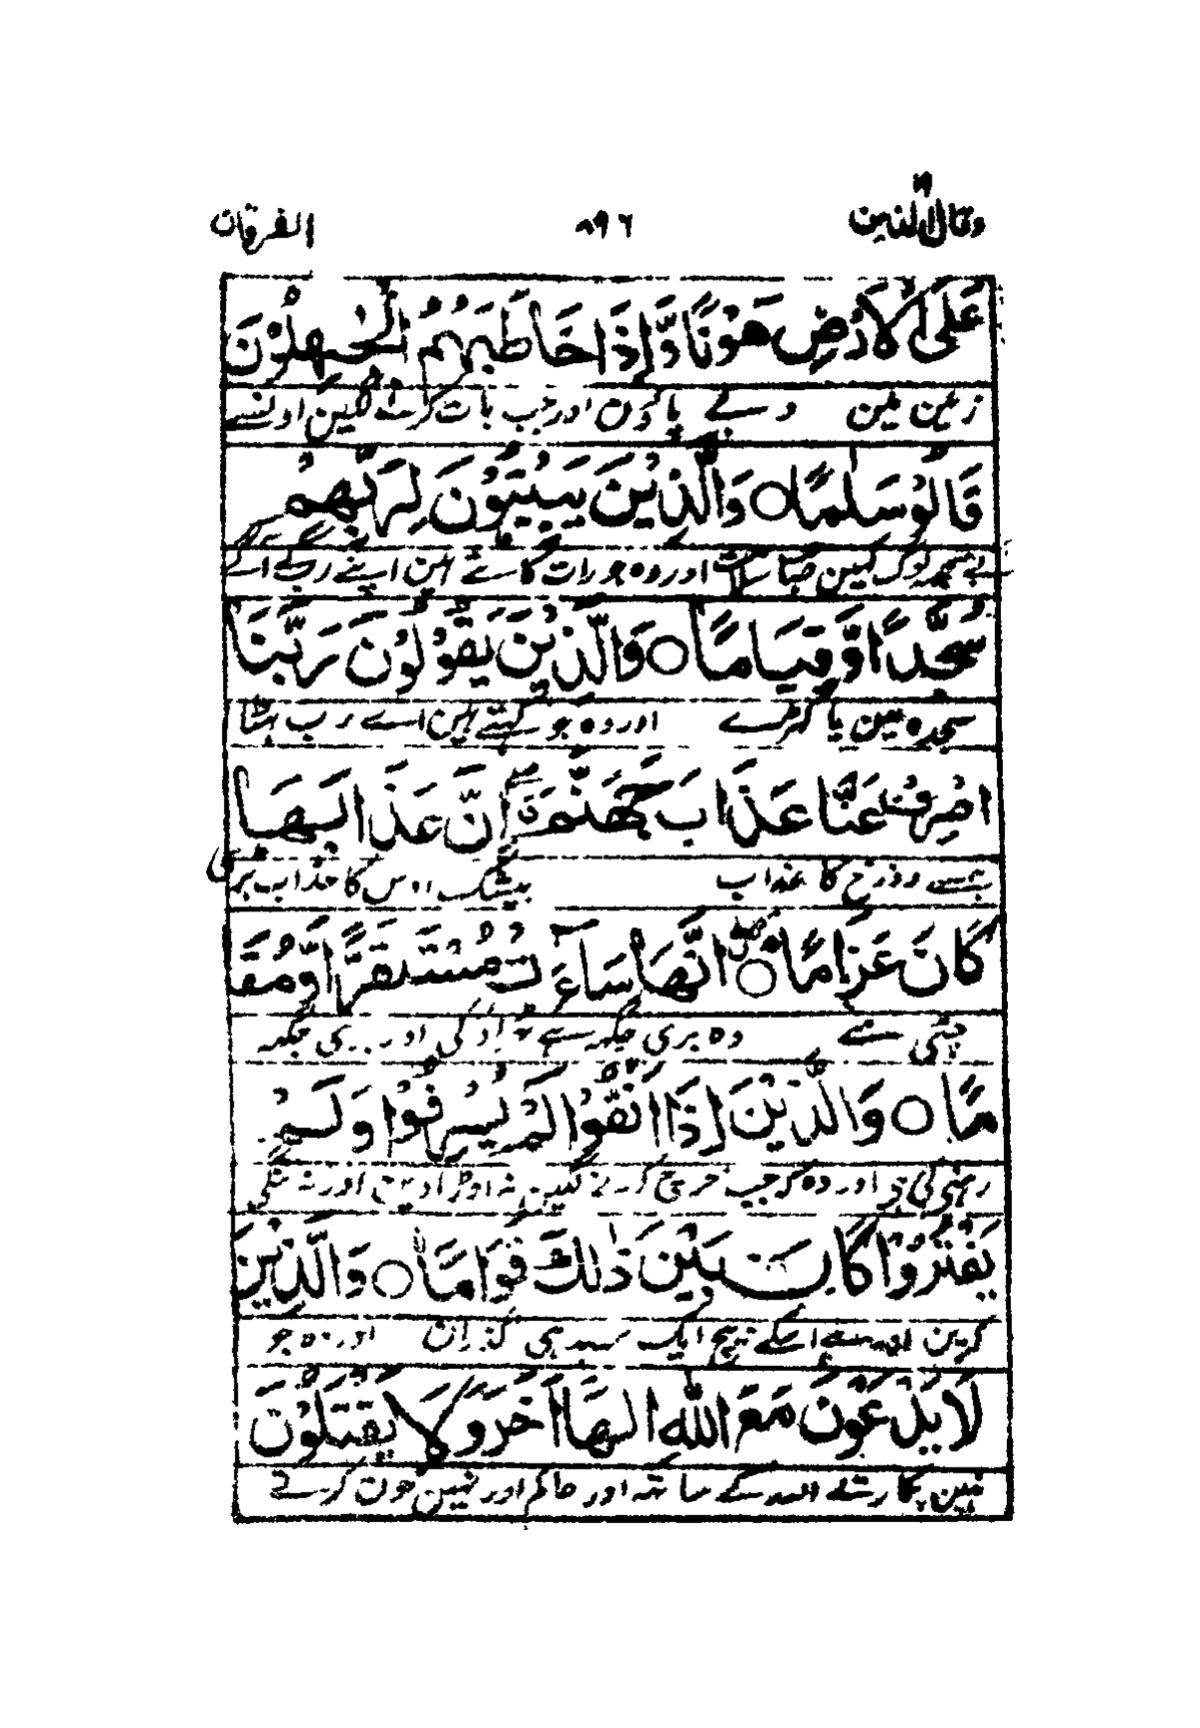 وقال الذین ۱۹ ۸۹۶ الفرقان
عَلَى الْاَرْضِ هَوْنًا وَّاِذَا خَاطَبَهُمُ الْجٰهِلُوْنَ
زمین مین دبے پاؤن اور جب بات کرنے لگین اونسے
قَالُوْا سَلٰمًا ○ وَالَّذِيْنَ يَبِيْتُوْنَ لِرَبِّهِمْ
بے سمجھ لوگ کہین صاحب سلامت اور وہ جو رات کاٹتے ہین اپنے رب کے آگے
سُجَّدًا وَّقِيَامًا ○ وَالَّذِيْنَ يَقُوْلُوْنَ رَبَّنَا
سجدہ مین یا کھڑے اور وہ جو کہتے ہین اے رب ہٹا
اصْرِفْ عَنَّا عَذَابَ جَهَنَّمَ اِنَّ عَذَابَهَا
ہمسے دوزخ کا عذاب بیشک اوس کا عذاب بڑی
كَانَ غَرَامًا ○ اِنَّهَا سَاءَتْ مُسْتَقَرًّا وَّمُقَا
چٹی ہے وہ بری جگہ ہے ٹھہراؤ کی اور بری جگہ
مًا ○ وَالَّذِيْنَ اِذَا اَنْفَقُوْا لَمْ يُسْرِفُوْا وَلَمْ
رہنے کی اور وہ کہ جب خرچ کرنے لگین نہ اوڑادین اور نہ تنگی
يَقْتُرُوْا وَكَانَ بَيْنَ ذٰلِكَ قَوَامًا ○ وَالَّذِيْنَ
کرین اور ہے اسکے بیچ ایک سیدھی گذران اور وہ جو
لَا يَدْعُوْنَ مَعَ اللّٰهِ اِلٰهًا اٰخَرَ وَلَا يَقْتُلُوْنَ
نہین پکارتے اللہ کے ساتھ اور حاکم اور نہین خون کرتے